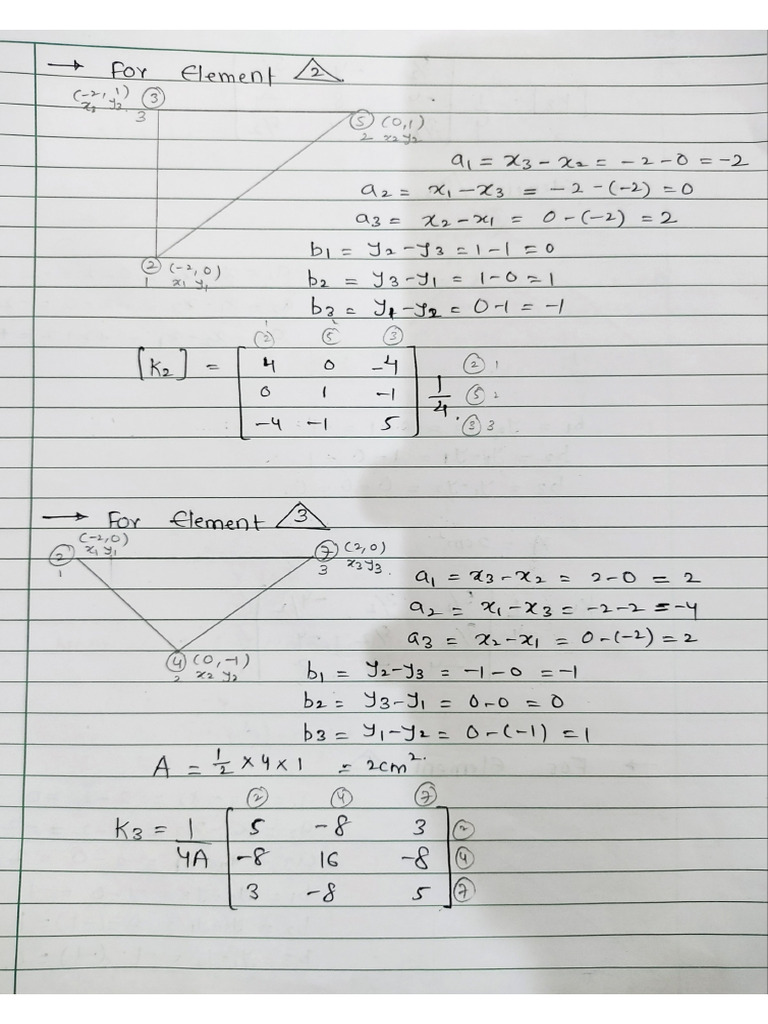 → For Element 2.
(-2, 1) ③
x3 y3
3
⑤ (0,1)
2 x2 y2
a1 = x3 - x2 = -2 - 0 = -2
a2 = x1 - x3 = -2 - (-2) = 0
a3 = x2 - x1 = 0 - (-2) = 2
b1 = y2 - y3 = 1 - 1 = 0
② (-2,0)
1 x1 y1
b2 = y3 - y1 = 1 - 0 = 1
b3 = y1 - y2 = 0 - 1 = -1
② ⑤ ③
[K2] = [ 4 0 -4 ② 1
0 1 -1 1/4. ⑤ 2
-4 -1 5 ] ③ 3
→ For Element 3
(-2,0)
② x1 y1
1
⑦ (2,0)
3 x3 y3.
a1 = x3 - x2 = 2 - 0 = 2
a2 = x1 - x3 = -2 - 2 = -4
a3 = x2 - x1 = 0 - (-2) = 2
④ (0, -1)
2 x2 y2
b1 = y2 - y3 = -1 - 0 = -1
b2 = y3 - y1 = 0 - 0 = 0
b3 = y1 - y2 = 0 - (-1) = 1
A = 1/2 × 4 × 1 = 2cm².
② ④ ⑦
K3 = 1/4A [ 5 -8 3 ②
-8 16 -8 ④
3 -8 5 ] ⑦